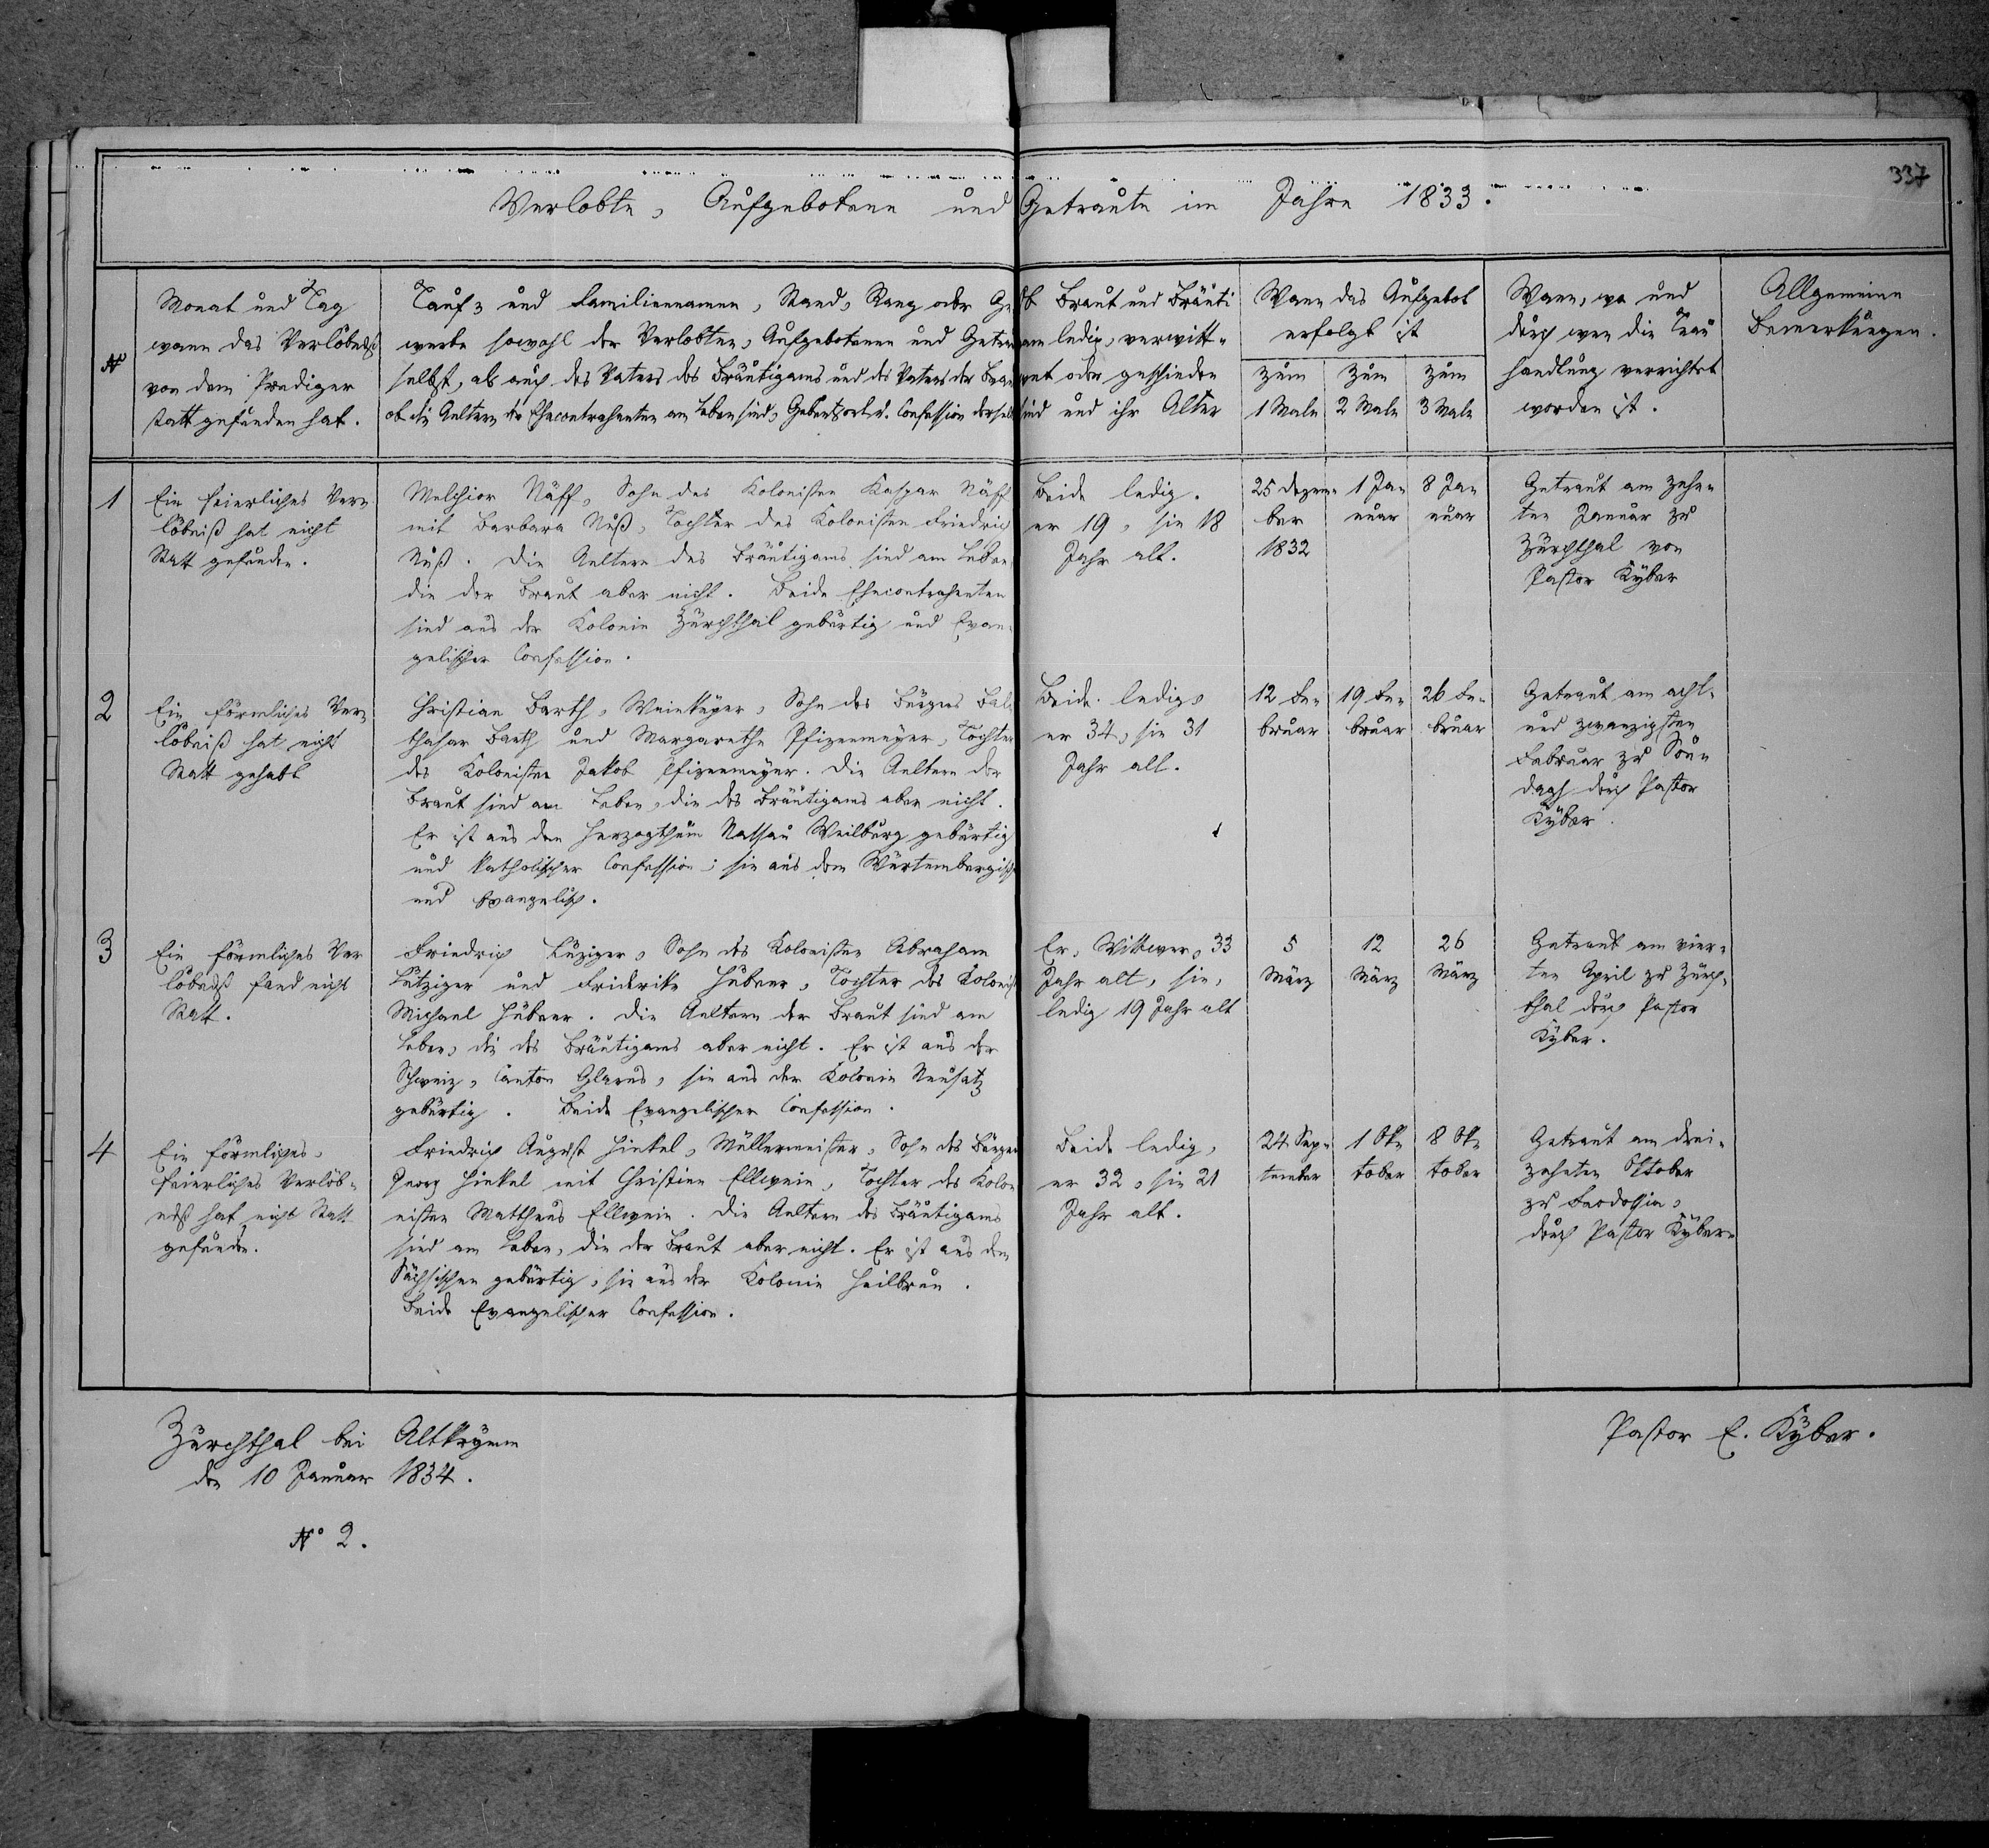 337
Verlobte, Aufgebotene und Getraute im Jahre 1833.
№
Monat und Tag
wann das Verlöbniß
von dem Prediger
statt gefunden hat.
Tauf- und Familiennamen, Stand, Rang oder Ge
werbe sowohl der Verlobten, Aufgebotenen und Getrau
selbst, als auch des Vaters des Bräutigams und des Vaters der Brau
ob die Aeltern der Ehecontrahenten am Leben sind, Geburtsort u. Confession dersel
Ob Braut und Bräuti
am ledig, verwitt-
wet oder geschieden
sind und ihr Alter
Wann das Aufgebot
erfolgt ist
zum
1 Male
zum
2 Male
zum
3 Male
Wann, wo und
durch wen die Trau
handlung verrichtet
worden ist.
Allgemeine
Bemerkungen.
1
Ein feierliches Ver-
löbniß hat nicht
Statt gefunden.
Melchior Näff, Sohn des Kolonisten Kaspar Näff
mit Barbara Nuß, Tochter des Kolonisten Friedrich
Nuß. Die Aeltern des Bräutigams sind am Leben
die der Braut aber nicht. Beide Ehecontrahenten
sind aus der Kolonie Zürchthal gebürtig und Evan-
gelischer Confession.
Beide ledig.
er 19, sie 18
Jahr alt.
25 Dezem-
ber
1832
1 Ja-
nuar
8 Ja-
nuar
Getraut am zehn-
ten Januar zu
Zürchthal von
Pastor Kyber
2
Ein förmliches Ver-
löbniß hat nicht
Statt gehabt
Christian Barth, Weinküper, Sohn des Bürgers Bal-
thasar Barth und Margarethe Pfizenmeyer, Tochter
des Kolonisten Jakob Pfizenmeyer. Die Aeltern der
Braut sind am Leben, die des Bräutigams aber nicht.
Er ist aus dem Herzogthum Nassau Weilburg gebürtig
und katholischer Confession; sie aus dem Würtembergisch
und Evangelisch.
Beide ledig,
er 34, sie 31
Jahr alt.
12 Fe-
bruar
19 Fe-
bruar
26 Fe-
bruar
Getraut am acht-
und zwanzigsten
Februar zu Sou-
dagh durch Pastor
Kyber.
3
Ein förmliches Ver
löbniß fand nicht
Statt.
Friedrich Luziger, Sohn des Kolonisten Abraham
Lutziger und Friderike Hubner, Tochter des Kolonist
Michael Hübner. Die Aeltern der Braut sind am
Leben, die des Bräutigams aber nicht. Er ist aus der
Schweiz, Canton Glarus, sie aus der Kolonie Neusatz
gebürtig. Beide Evangelischer Confession.
Er, Wittwer, 33
Jahr alt, sie,
ledig 19 Jahr alt
5
März
12
März
26
März
Getraut am vier-
ten April zu Zürch-
thal durch Pastor
Kyber.
4
Ein förmliches,
feierliches Verlöb-
niß hat nicht Statt
gefunden.
Friedrich August Hinkel, Müllermeister, Sohn des Bürger
Georg Hinkel mit Christine Ellwein, Tochter des Kolo-
nisten Matthaus Ellwein. Die Aeltern des Bräutigams
sind am Leben, die der Braut aber nicht. Er ist aus dem
Sächsischen gebürtig, sie aus der Kolonie Heilbrun.
Beide Evangelischer Confession.
Beide ledig,
er 32, sie 21
Jahr alt.
24 Sep-
tember
1 Ok-
tober
8 Ok-
tober
Getraut am drei-
zehnten Oktober
zu Feodosia,
durch Pastor Kyber
Zürchthal bei Altkrymm
den 10 Januar 1834.
Pastor E. Kyber.
№ 2.